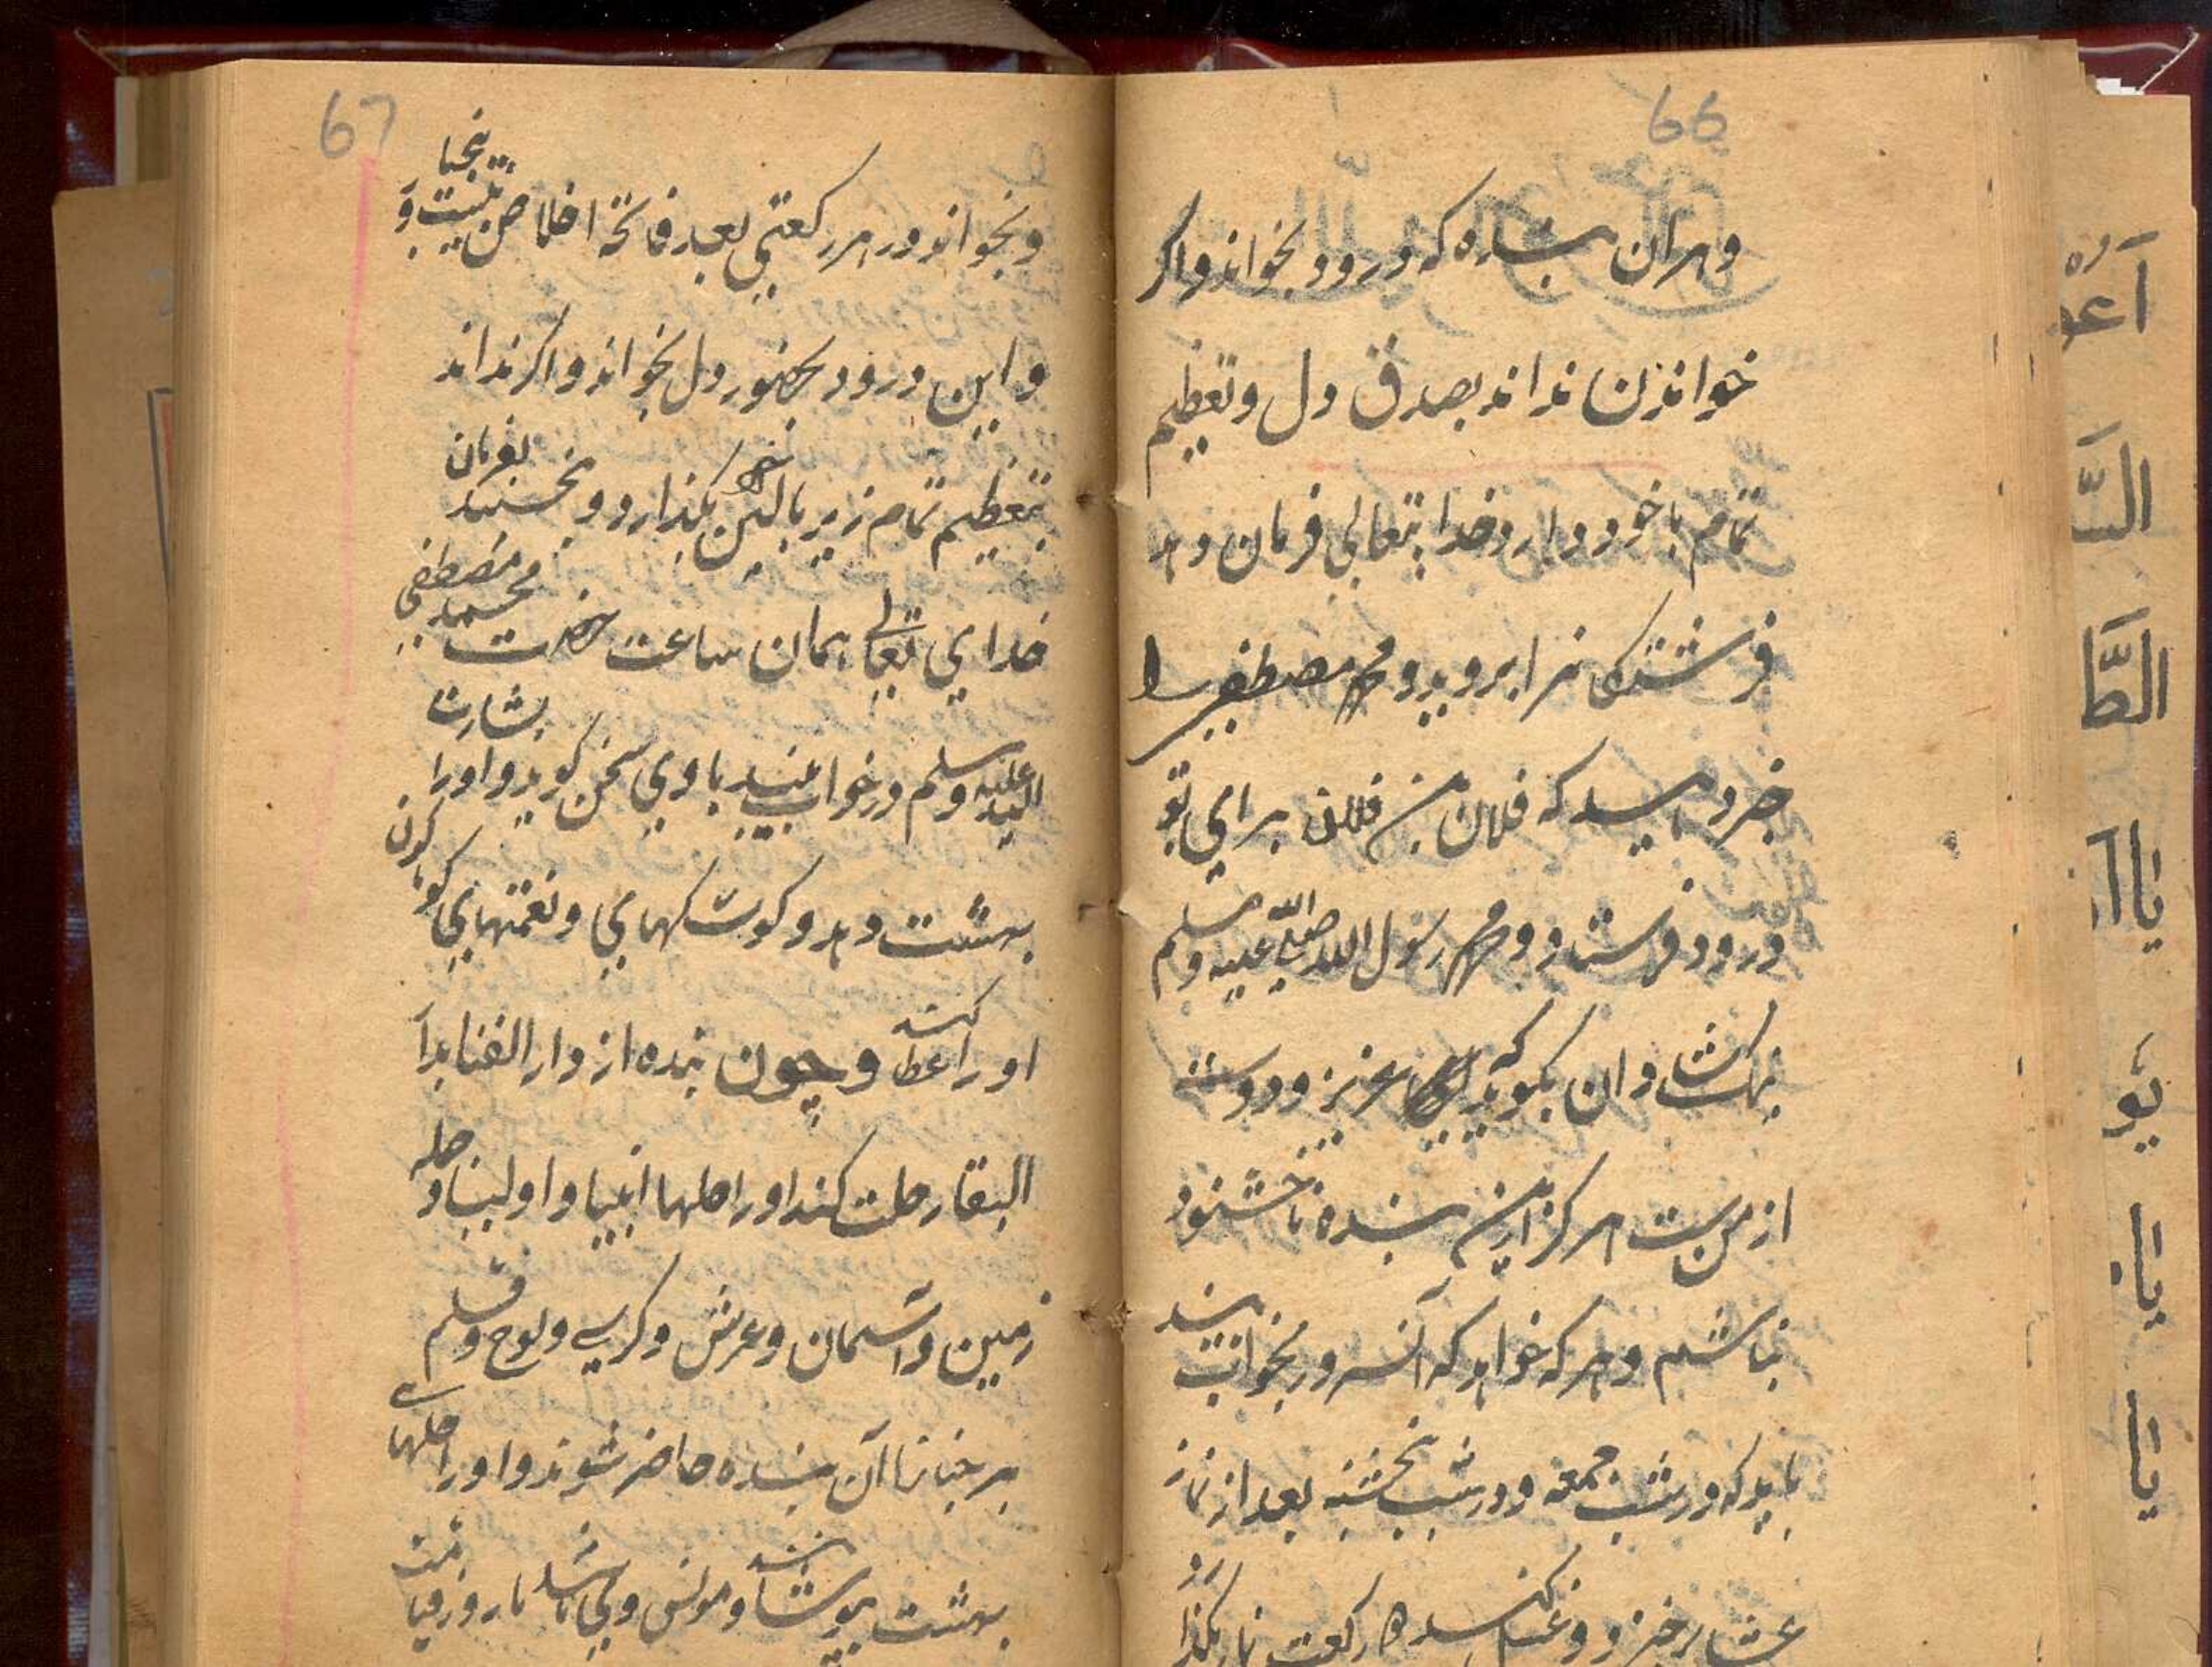 66
و هر آن بنده که درود بخواند و اگر
خواندن نداند بصدق دل و تعظیم
تمام باخود دارد خدایتعالی فرمان دهد
فرشتگانرا بروید و محمد مصطفی را
خبر دهید که فلان بن فلان برای تو
درود فرستاد و محمد رسول الله صلی الله علیه وسلم
شادان بگوید که عزیز و دوست
از من ست هرکز ازین بنده ناخشنود
نباشم و هر که خواهد که آنسرور بخواب بیند
باید که در شب جمعه و در شب پنجشنبه بعد از نماز
عشا برخیزد و غسل کند رکعت نماز بکذارد
67
و بخواند در هر رکعتی بعد فاتحه اخلاص بیست و پنجبار
و این درود بحضور دل بخواند و اگر نداند
بتعظیم تمام زیر بالین بکذارد و بخسپد بفرمان
خدای تعالی همان ساعت حضرت محمد مصطفی
علیه وسلم در خواب بیند باوی سخن کوید و او را بشارت
بهشت دهد و کوشکهای و نعمتهای کوناکون
او را عطا کند و چون بنده از دار الفنا بدا
البقا رحلت کند او را حلها انبیا و اولیا و حله
زمین و آسمان و عرش و کرسی و لوح و قلم
بر جنازا آن بنده حاضر شوند و او را حلهای
بهشت بپوشانند و مونس وی باشند تا روز قیامت
اعو
الط
یاا
یو
یا
یا